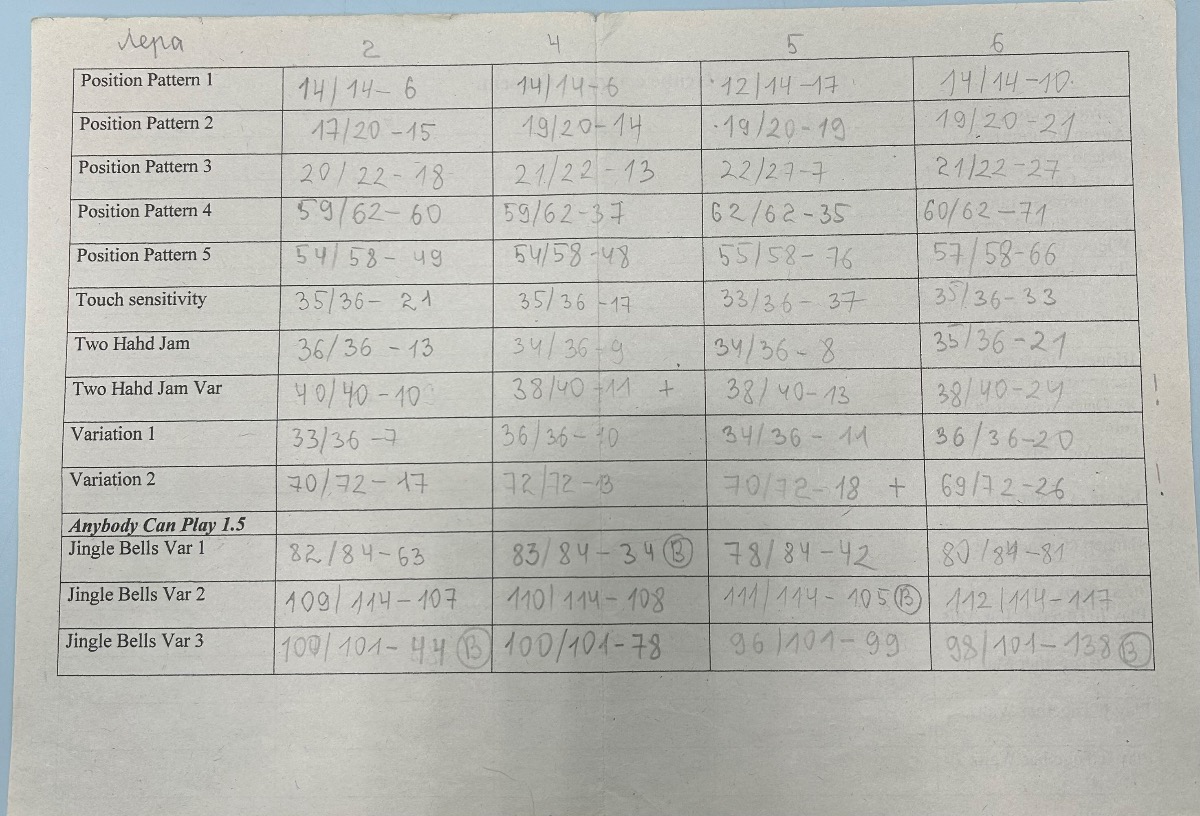 Лера 2 4 5 6
Position Pattern 1 14/14- 6 14/14-6 ·12/14-17 14/14-10.
Position Pattern 2 17/20-15 19/20-14 ·19/20-19 19/20-21
Position Pattern 3 20/22-18 21/22-13 22/27-7 21/22-27
Position Pattern 4 59/62-60 59/62-37 62/62-35 60/62-71
Position Pattern 5 54/58-49 54/58-48 55/58-76 57/58-66
Touch sensitivity 35/36- 21 35/36-17 33/36-37 35/36-33
Two Hahd Jam 36/36-13 34/36-9 34/36-8 35/36-21
Two Hahd Jam Var 40/40-10 38/40-11 + 38/40-13 38/40-24 !
Variation 1 33/36-7 36/36-10 34/36-11 36/36-20
Variation 2 70/72-17 72/72-13 70/72-18 + 69/72-26 !
Anybody Can Play 1.5
Jingle Bells Var 1 82/84-63 83/84-34 В 78/84-42 80/84-81
Jingle Bells Var 2 109/114-107 110/114-108 111/114-105 В 112/114-117
Jingle Bells Var 3 100/101-44 В 100/101-78 96/101-99 98/101-138 В